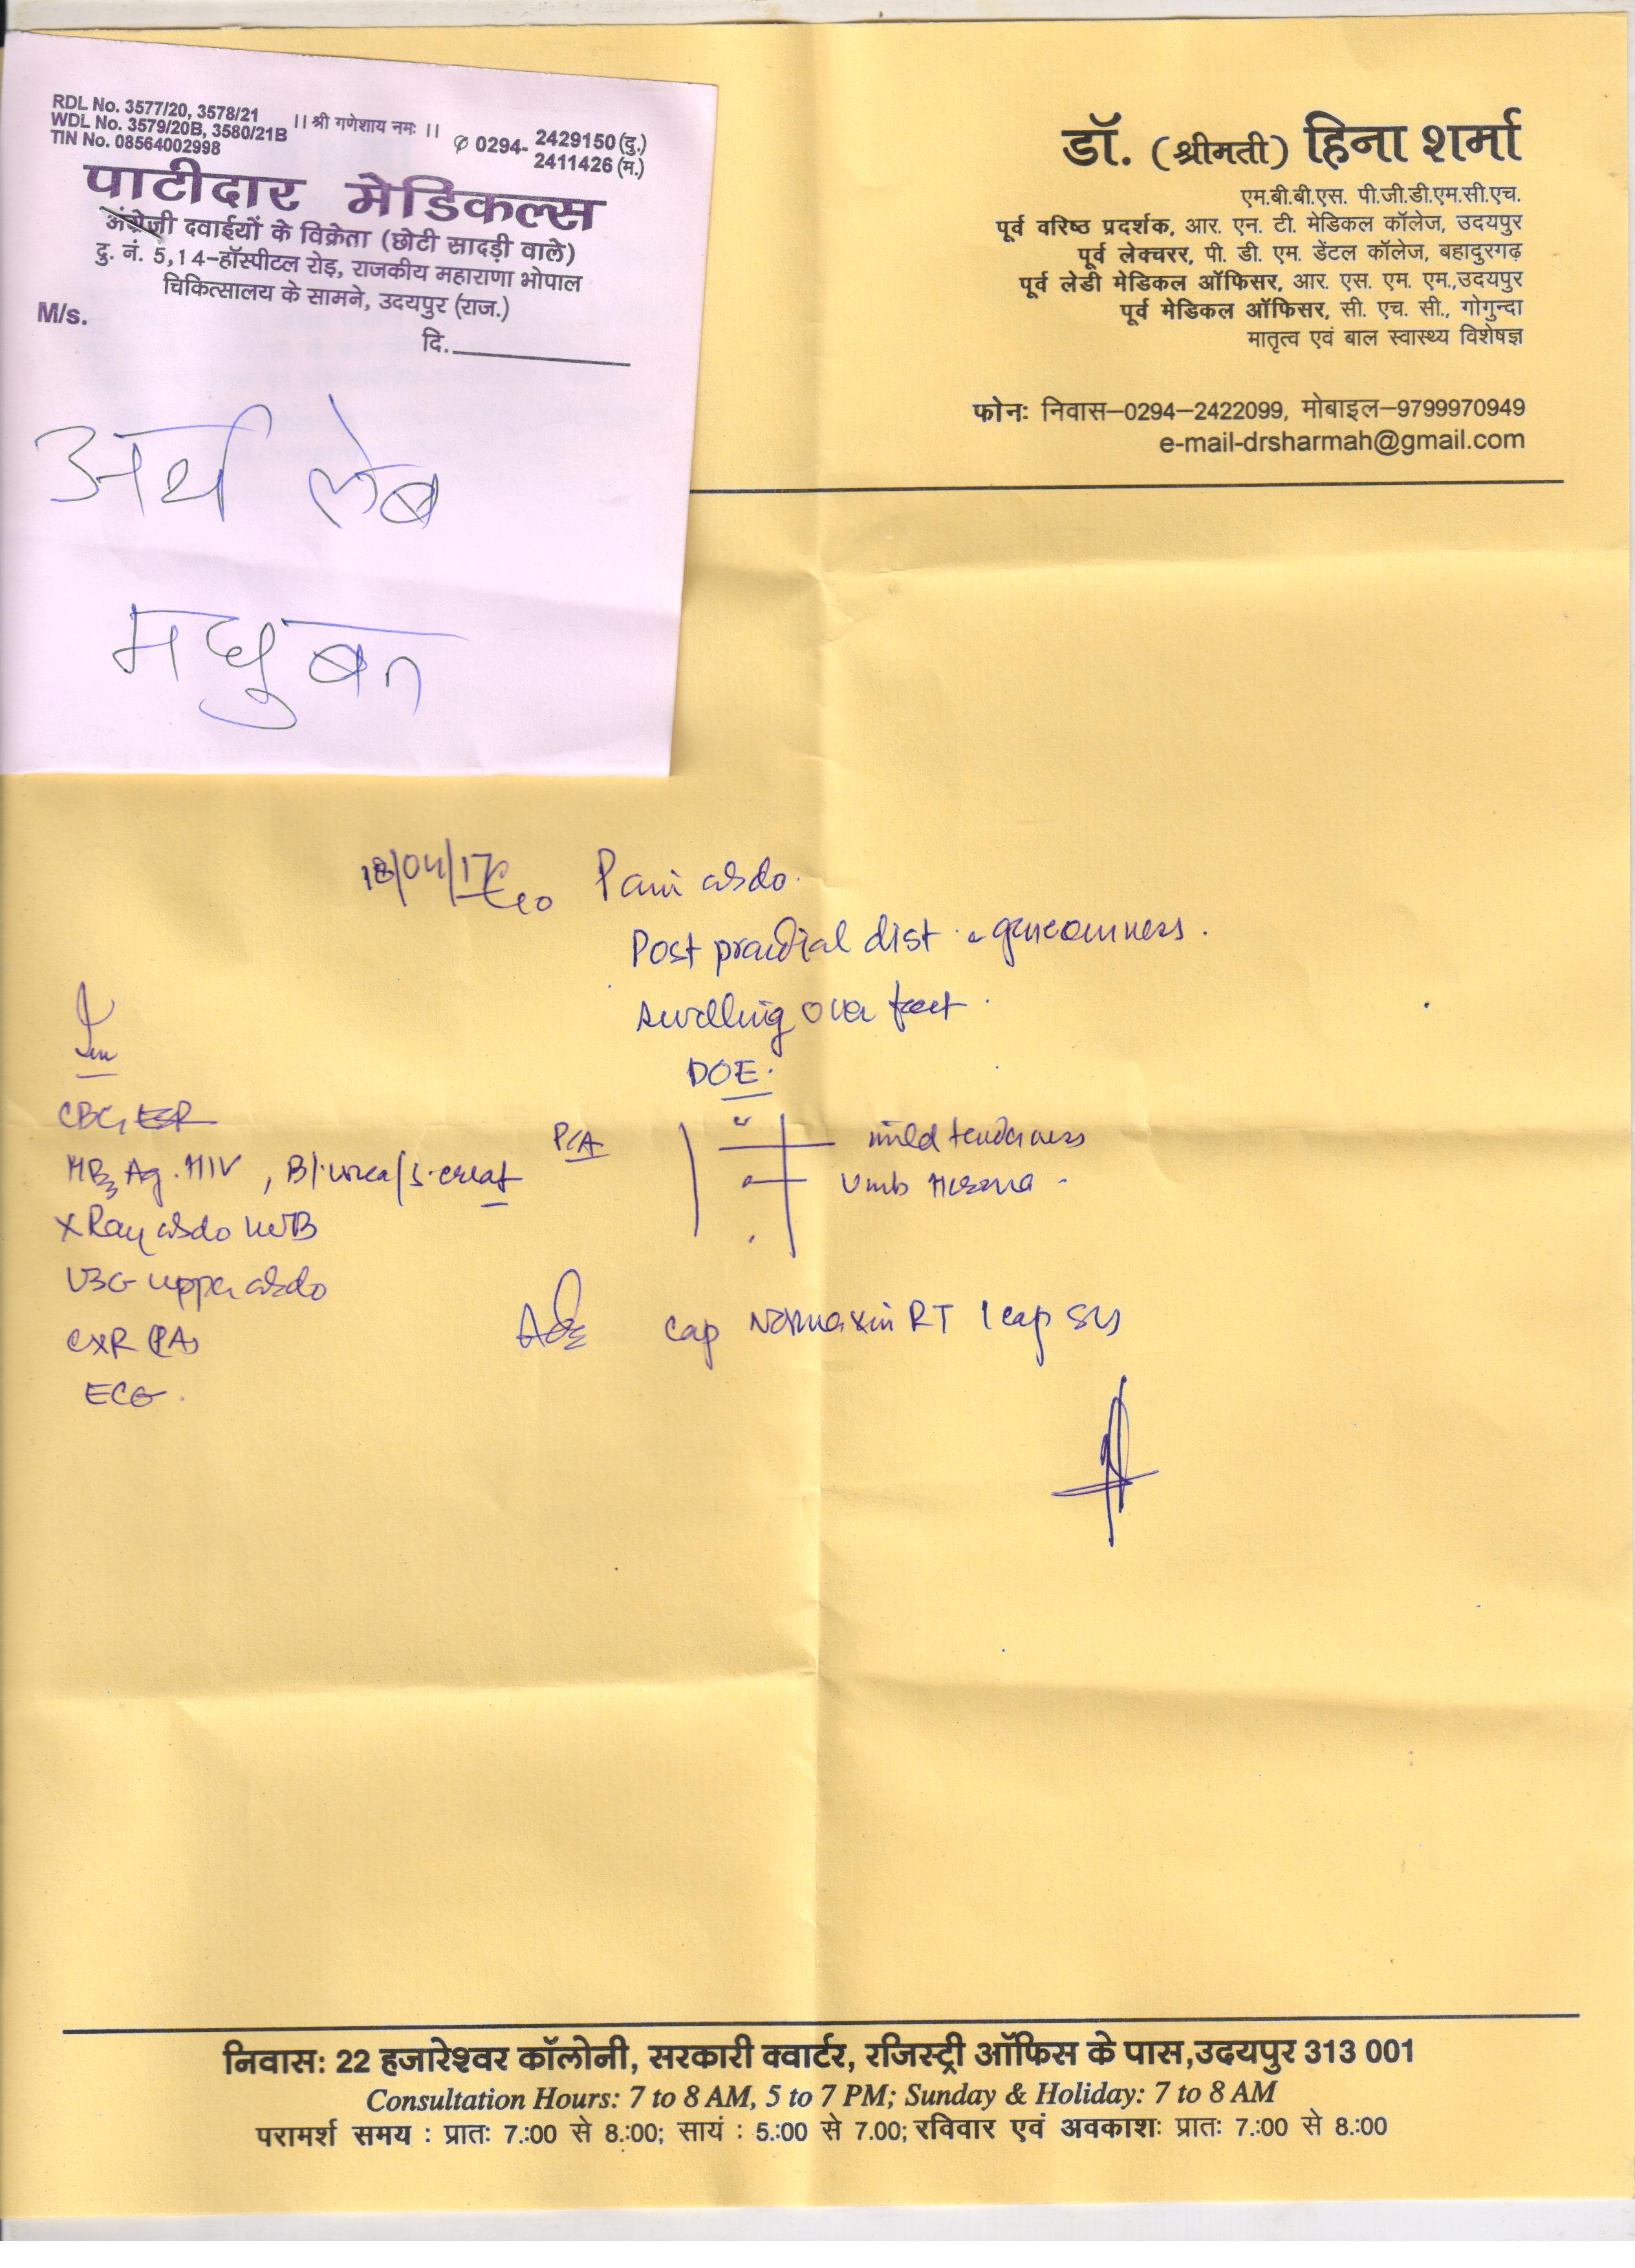 RDL No. 3577/20, 3578/21
WDL No. 3579/20B, 3580/21B
TIN No. 08564002998
।। श्री गणेशाय नमः ।।
✆ 0294- 2429150 (दु.)
2411426 (म.)
पाटीदार मेडिकल्स
अंग्रेजी दवाईयों के विक्रेता (छोटी सादड़ी वाले)
दु. नं. 5,14-हॉस्पीटल रोड़, राजकीय महाराणा भोपाल
चिकित्सालय के सामने, उदयपुर (राज.)
M/s.
दि.
अर्थ लेब
मधुबन
डॉ. (श्रीमती) हिना शर्मा
एम.बी.बी.एस. पी.जी.डी.एम.सी.एच.
पूर्व वरिष्ठ प्रदर्शक, आर. एन. टी. मेडिकल कॉलेज, उदयपुर
पूर्व लेक्चरर, पी. डी. एम. डेंटल कॉलेज, बहादुरगढ़
पूर्व लेडी मेडिकल ऑफिसर, आर. एस. एम. एम.,उदयपुर
पूर्व मेडिकल ऑफिसर, सी. एच. सी., गोगुन्दा
मातृत्व एवं बाल स्वास्थ्य विशेषज्ञ
फोनः निवास–0294–2422099, मोबाइल–9799970949
e-mail-drsharmah@gmail.com
18/04/17 Pain abdo.
Post prandial dist
swelling over feet.
DOE.
P/A mild tenderness
Umb Hernia.
CBC, ESR
HBsAg. HIV, B/urea/S.creat
X Ray abdo KUB
USG upper abdo
CXR (PA)
ECG.
Adv Cap Normaxin RT 1 cap
निवास: 22 हजारेश्वर कॉलोनी, सरकारी क्वार्टर, रजिस्ट्री ऑफिस के पास,उदयपुर 313 001
Consultation Hours: 7 to 8 AM, 5 to 7 PM; Sunday & Holiday: 7 to 8 AM
परामर्श समय : प्रातः 7.:00 से 8.:00; सायं : 5.:00 से 7.00; रविवार एवं अवकाशः प्रातः 7.:00 से 8.:00